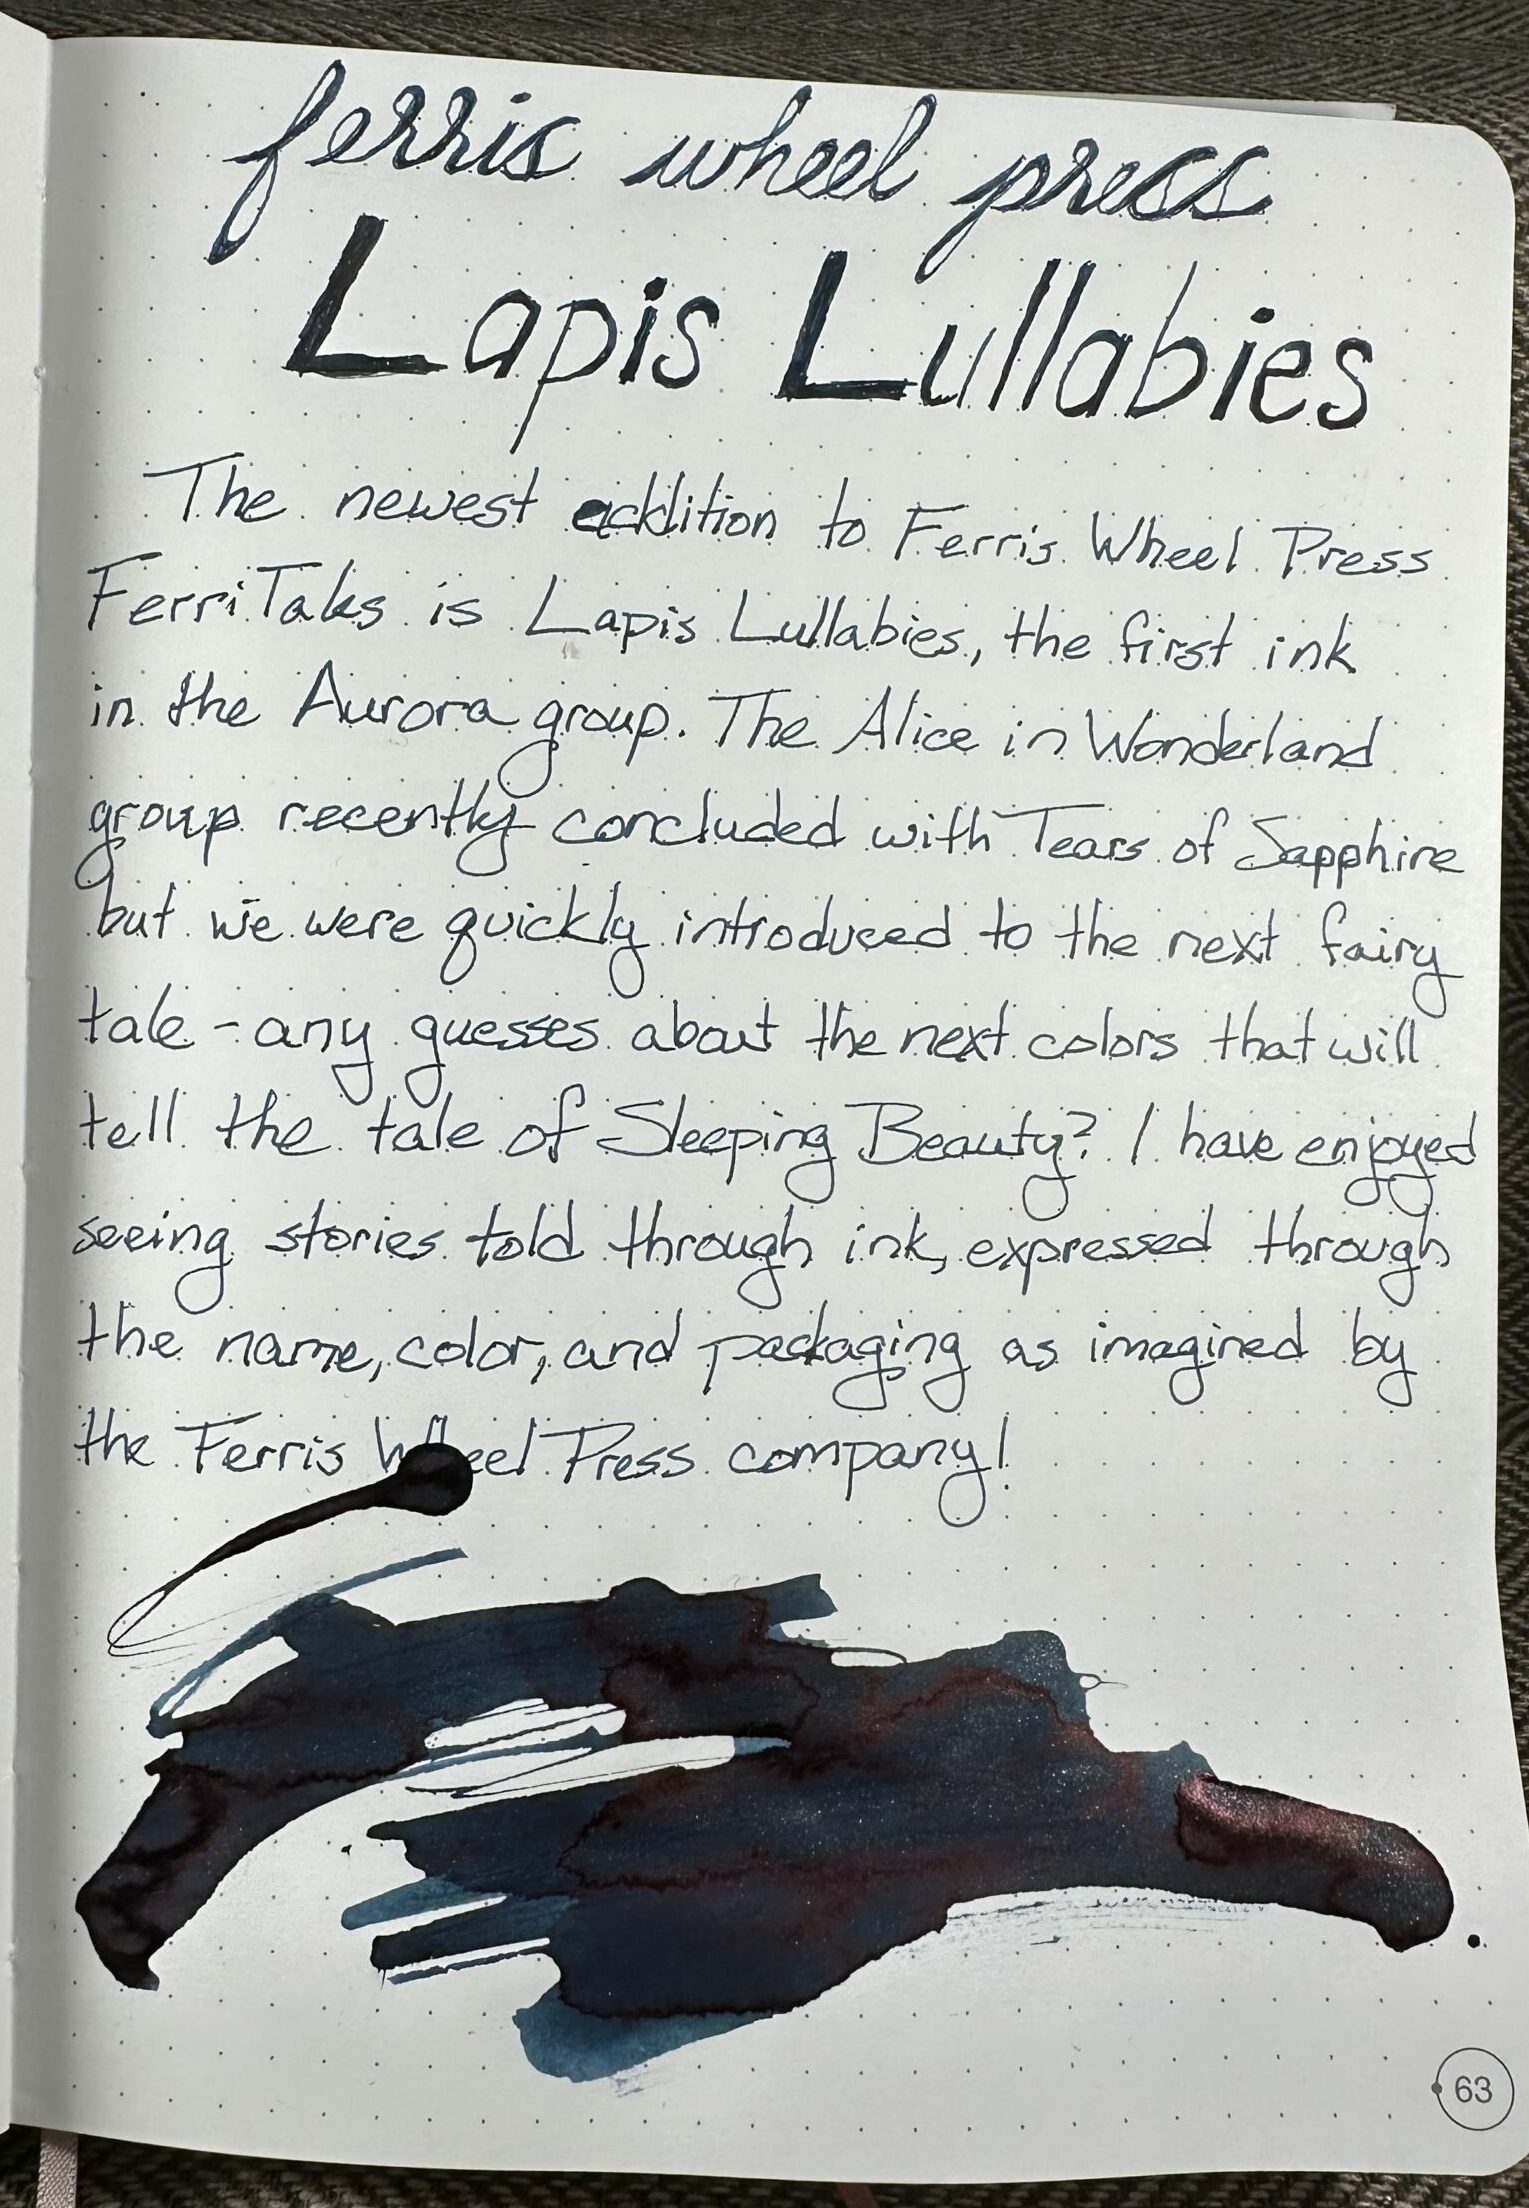 ferris wheel press
Lapis Lullabies
The newest addition to Ferris Wheel Press
FerriTales is Lapis Lullabies, the first ink
in the Aurora group. The Alice in Wonderland
group recently concluded with Tears of Sapphire
but we were quickly introduced to the next fairy
tale - any guesses about the next colors that will
tell the tale of Sleeping Beauty? I have enjoyed
seeing stories told through ink, expressed through
the name, color, and packaging as imagined by
the Ferris Wheel Press company!
63